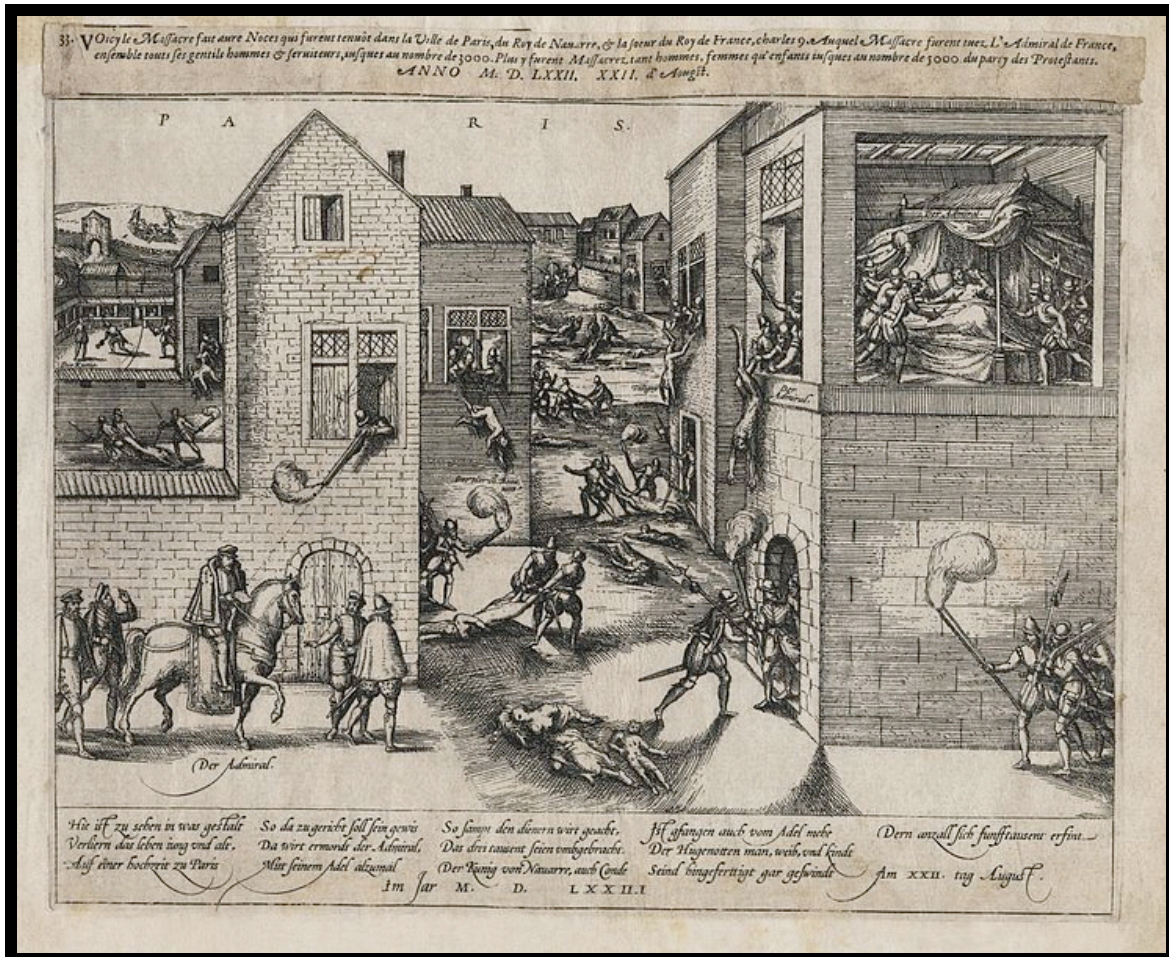 33. VOicy le Massacre fait aure Noces qui furent tenuöt dans la Ville de Paris, du Roy de Nauarre, & la soeur du Roy de France, charles 9. Auquel Massacre furent tuez L'Admiral de France,
ensemble touts ses gentils hommes & serviteurs, iusques au nombre de 3000. Plus y furent Massacrez, tant hommes, femmes qu'enfants iusques au nombre de 5000. du party des Protestants.
ANNO M. D. LXXII. XXII. d'Aougst.
PARIS.
Der Admiral.
Der Admiral.
Der Admiral.
Hie ist zu sehen in was gestalt
Verliern das leben iung vnd alt,
Auf einer hochzeit zu Paris
So da zugericht soll sein gewis
Da wirt ermordt der Admiral,
Mitt seinem Adel alzumal
So sampt den dienern wirt geacht,
Das drei tausent seien vmbgebracht.
Der Kunig von Nauarre, auch Conde
Ist gfangen auch vom Adel mehe
Der Hugenotten man, weib, vnd kindt
Seind hingefertigt gar geswindt
Dern anzall sich funfftausent erfint
Am XXII. tag August.
Im Jar M. D. LXXII.I